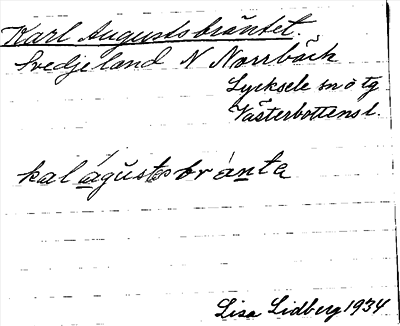 Karl Augustsbräntet.
Svedjeland N Norrbäck
Lycksele sn o tg
Västerbottens l.
kal águstsbránta
Lisa Lidberg 1934